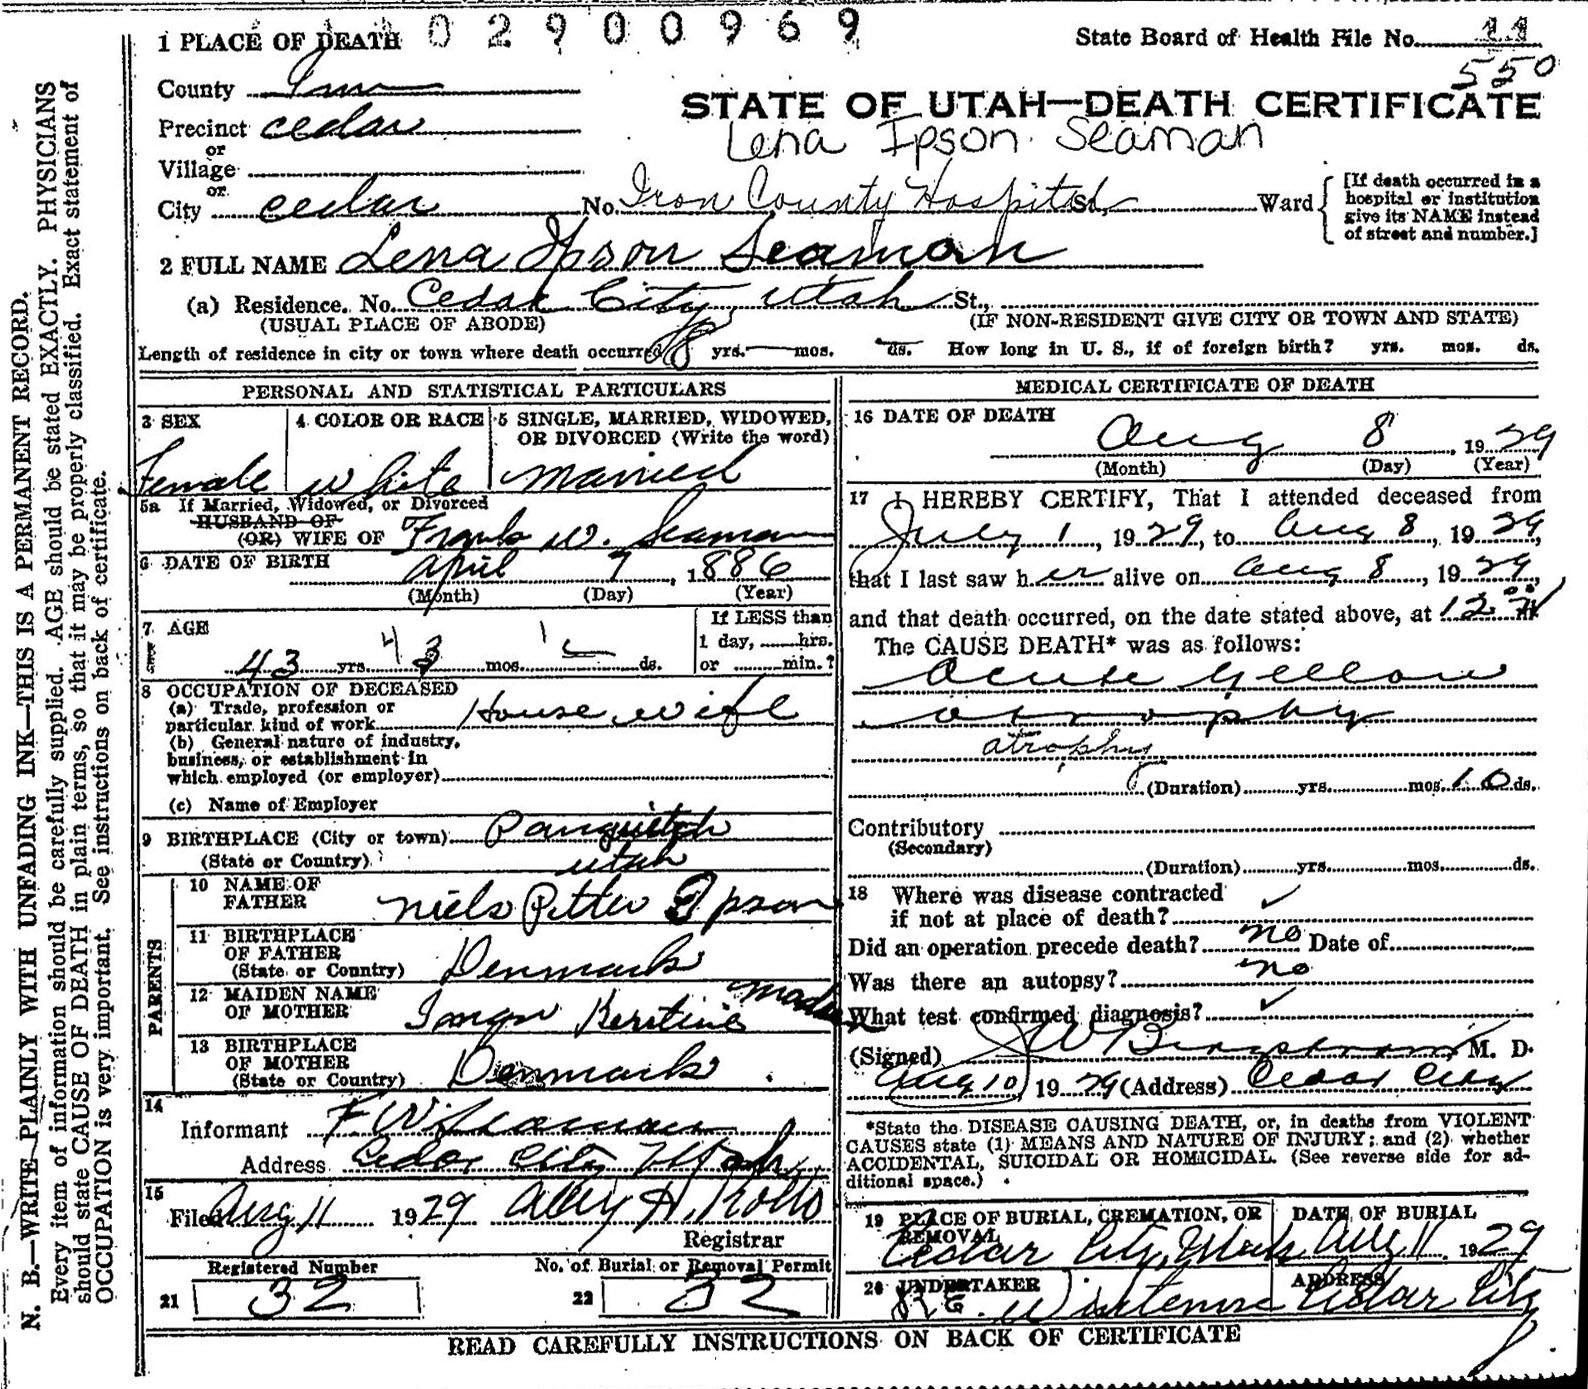 0 2 9 0 0 9 6 9
1 PLACE OF DEATH
State Board of Health File No. 11
550
County Iron
STATE OF UTAH—DEATH CERTIFICATE
Precinct cedar
Lena Ipson Seaman
or
Village
or
City cedar No. Iron County Hospital St., Ward
[If death occurred in a
hospital or institution
give its NAME instead
of street and number.]
2 FULL NAME Lena Ipson Seaman
(a) Residence. No. Cedar City, Utah St.,
(USUAL PLACE OF ABODE) (IF NON-RESIDENT GIVE CITY OR TOWN AND STATE)
Length of residence in city or town where death occurred 8 yrs. mos. ds. How long in U. S., if of foreign birth? yrs. mos. ds.
PERSONAL AND STATISTICAL PARTICULARS
3 SEX
Female
4 COLOR OR RACE
white
5 SINGLE, MARRIED, WIDOWED,
OR DIVORCED (Write the word)
married
5a If Married, Widowed, or Divorced
HUSBAND OF
(OR) WIFE OF Frank W. Seaman
6 DATE OF BIRTH April 7, 1886
(Month) (Day) (Year)
7 AGE
43 yrs. 4 3 mos. 1 ds.
If LESS than
1 day, hrs.
or min.?
8 OCCUPATION OF DECEASED
(a) Trade, profession or
particular kind of work House wife
(b) General nature of industry,
business, or establishment in
which employed (or employer)
(c) Name of Employer
9 BIRTHPLACE (City or town) Panguitch
(State or Country) Utah
PARENTS
10 NAME OF
FATHER Niels Petter Ipson
11 BIRTHPLACE
OF FATHER
(State or Country) Denmark
12 MAIDEN NAME
OF MOTHER Kerstine
13 BIRTHPLACE
OF MOTHER
(State or Country) Denmark
14
Informant F W Seaman
Address Cedar City Utah
15
Filed Aug 11 1929
Registrar
Registered Number
21 32
No. of Burial or Removal Permit
22 32
MEDICAL CERTIFICATE OF DEATH
16 DATE OF DEATH
Aug 8, 1929
(Month) (Day) (Year)
17 I HEREBY CERTIFY, That I attended deceased from
July 1, 1929, to Aug 8, 1929,
that I last saw her alive on Aug 8, 1929,
and that death occurred, on the date stated above, at 12
The CAUSE DEATH* was as follows:
Acute Yellow
atrophy
atrophy
(Duration) yrs. mos. 10 ds.
Contributory
(Secondary)
(Duration) yrs. mos. ds.
18 Where was disease contracted
if not at place of death? ✓
Did an operation precede death? no Date of
Was there an autopsy? no
What test confirmed diagnosis? ✓
(Signed) M. D.
Aug 10, 1929 (Address) Cedar City
*State the DISEASE CAUSING DEATH, or, in deaths from VIOLENT
CAUSES state (1) MEANS AND NATURE OF INJURY; and (2) whether
ACCIDENTAL, SUICIDAL OR HOMICIDAL. (See reverse side for ad-
ditional space.)
19 PLACE OF BURIAL, CREMATION, OR
REMOVAL
Cedar City, Utah
DATE OF BURIAL
Aug 11, 1929
20 UNDERTAKER
ADDRESS
Cedar City
READ CAREFULLY INSTRUCTIONS ON BACK OF CERTIFICATE
N. B.—WRITE PLAINLY WITH UNFADING INK—THIS IS A PERMANENT RECORD.
Every item of information should be carefully supplied. AGE should be stated EXACTLY. PHYSICIANS
should state CAUSE OF DEATH in plain terms, so that it may be properly classified. Exact statement of
OCCUPATION is very important. See instructions on back of certificate.